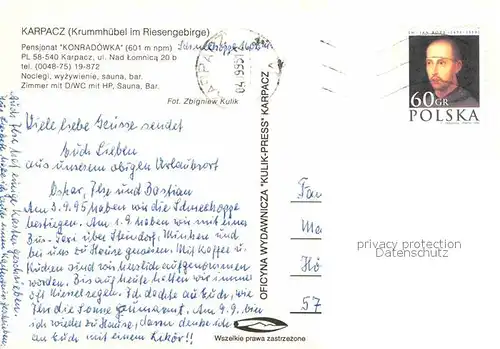 KARPACZ (Krummhübel im Riesengebirge)
Pensjonat "KONRADÓWKA" (601 m npm)
PL 58-540 Karpacz, ul. Nad Łomnicą 20 b
tel. (0048-75) 19-872
Noclegi, wyżywienie, sauna, bar.
Zimmer mit D/WC mit HP, Sauna, Bar.
Fot. Zbigniew Kulik
60GR
POLSKA
Viele liebe Grüsse sendet
Euch Lieben
aus unserem obigen Urlaubsort
Oskar, Ilse und Bastian
Am 3.9.95 haben wir die Schneekoppe
bestiegen. Am 1.9. haben wir mit eines
Bus-Taxi über München und
bei uns zu Hause gewesen. Mit Kaffee u.
Kuchen sind wir herzlich aufgenommen
worden. Bis auf heute hatten wir immer
oft Nieselregen. Ich dachte an Euch, wie
Ihr die Sonne. Am 9.9. bin
ich wieder zu Hause, dann denke ich
an Euch mit einem Likör!!
OFICYNA WYDAWNICZA "KULIK-PRESS" KARPACZ
Wszelkie prawa zastrzeżone
Fa
Me
Hö
57
privacy protection
Datenschutz